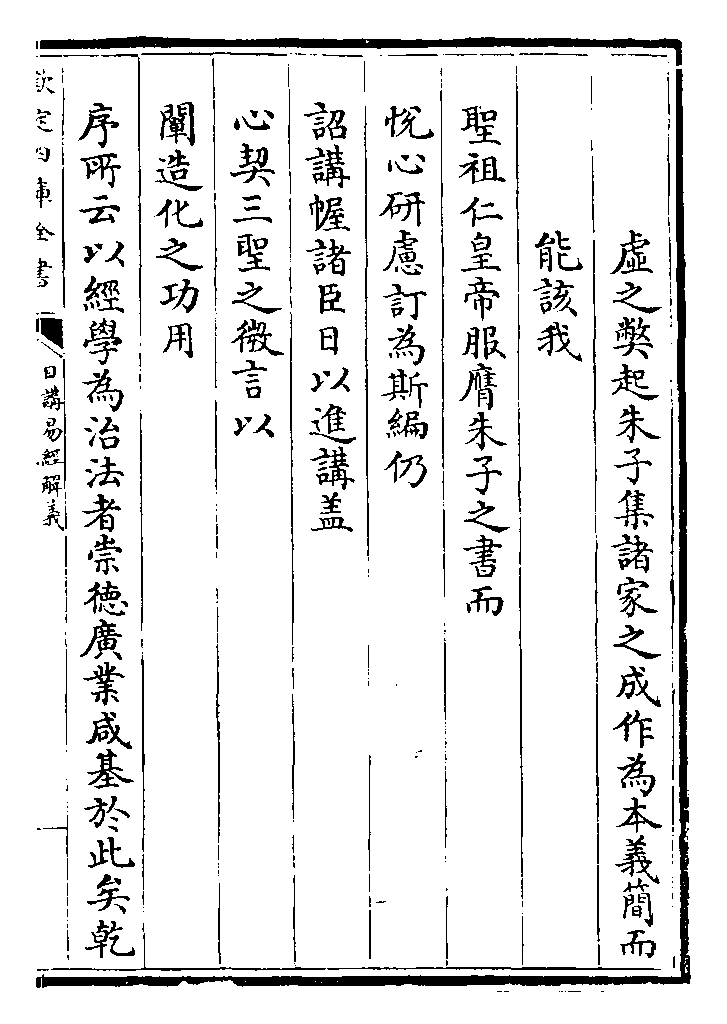 虛之弊起朱子集諸家之成作為本義簡而
能該我
聖祖仁皇帝服膺朱子之書而
悅心研慮訂為斯編仍
詔講幄諸臣日以進講盖
心契三聖之微言以
闡造化之功用
序所云以經學為治法者崇德廣業咸基於此矣乾
欽定四庫全書
日講易經解義